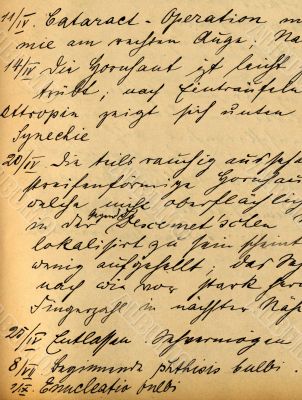 11/IV Cataract-Operation
mie am rechten Auge; Na
14/IV Die Hornhaut ist leicht
trübt; nach Einträufeln
Attropin zeigt sich unten
Synechie
20/IV Die teils rauchig aussehe
streifenförmige Hornhau
welche nicht oberflächlich
in der Gegend der Descemet'schen
lokalisirt zu sein scheint
wenig aufgehellt; das Se
nach wie vor stark
Fingerzahl in nächster Näh
25/IV Entlassen. Sehvermögen
8/VII Beginnende phthisis bulbi.
Enucleatio bulbi